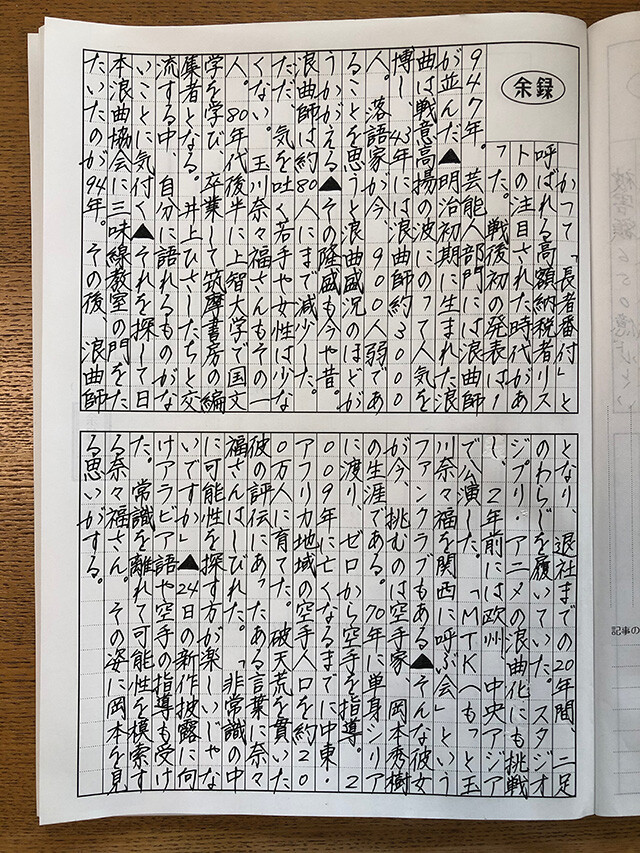 余録
かつて「長者番付」と
呼ばれる高額納税者リス
トの注目された時代があ
った。戦後初の発表は1
947年。芸能人部門には浪曲師
が並んだ▲明治初期に生まれた浪
曲は戦意高揚の波にのって人気を
博し、43年には浪曲師約3000
人。落語家が今、900人弱であ
ることを思うと浪曲盛況のほどが
うかがえる▲その隆盛も今や昔。
浪曲師は約80人にまで減少した。
ただ、気を吐く若手や女性は少な
くない。玉川奈々福さんもその一
人。80年代後半に上智大学で国文
学を学び、卒業して筑摩書房の編
集者となる。井上ひさしたちと交
流する中、自分に語れるものがな
いことに気付く▲それを探して日
本浪曲協会に三味線教室の門をた
たいたのが94年。その後、浪曲師
となり、退社までの20年間、二足
のわらじを履いていた。スタジオ
ジブリ・アニメの浪曲化にも挑戦
し、2年前には欧州、中央アジア
で公演した。「MTKへもっと玉
川奈々福を関西に呼ぶ会」という
ファンクラブもある▲そんな彼女
が今、挑むのは空手家、岡本秀樹
の生涯である。70年に単身シリア
に渡り、ゼロから空手を指導。2
009年に亡くなるまでに中東・
アフリカ地域の空手人口を約20
0万人に育てた。破天荒を貫いた
彼の評伝にあったある言葉に奈々
福さんはしびれた。「非常識の中
に可能性を探す方が楽しいじゃな
いですか」▲24日の新作披露に向
けアラビア語や空手の指導も受け
た。常識を離れて可能性を模索す
る奈々福さん。その姿に岡本を見
る思いがする。
記事の